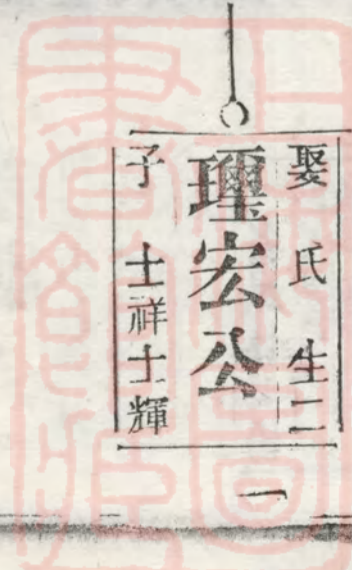 娶氏生二
理宏公
子士祥士輝
一